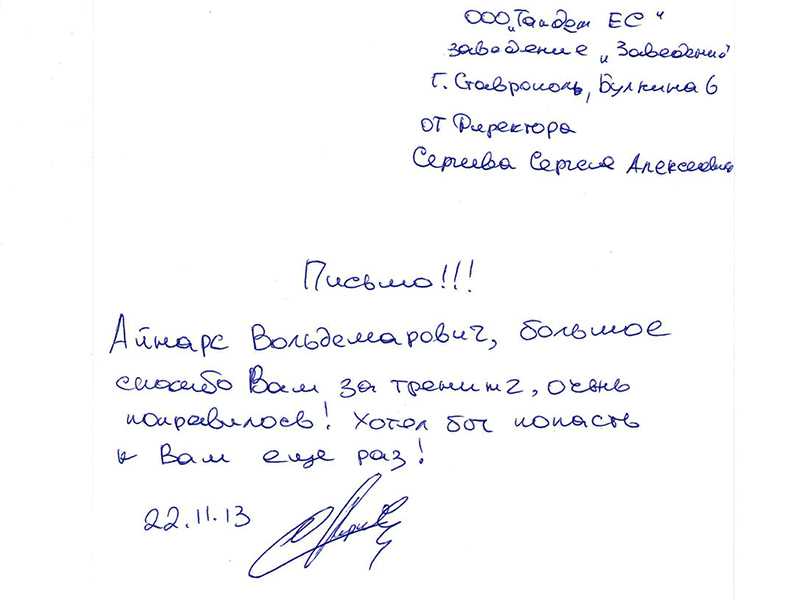 ООО „Тандем ЕС"
заведение „Заведение"
г. Ставрополь, Булкина 6
от Директора
Сергеева Сергея Алексеевича
Письмо!!!
Айнарс Вольдемарович, большое
спасибо Вам за тренинг, очень
понравилось! Хотел бы попасть
к Вам еще раз!
22.11.13